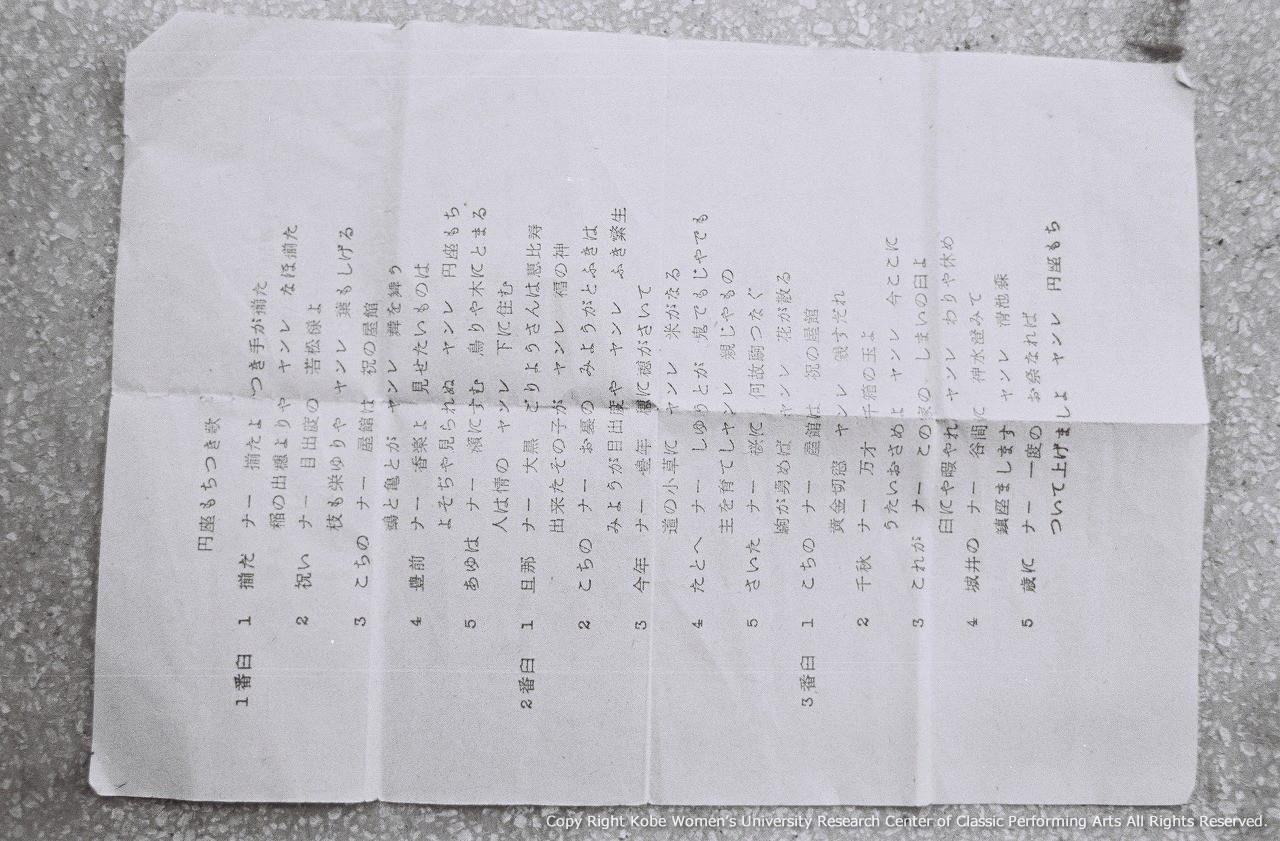 円座もちつき歌
1番臼 1 揃た ナー 揃たよ つき手が揃た
稲の出穂よりや ヤンレ なほ揃た
2 祝い ナー 目出度の 若松様よ
枝も栄ゆりや ヤンレ 葉もしげる
3 こちの ナー 屋館は 祝の屋館
鶴と亀とが ヤンレ 舞を舞う
4 豊前 ナー 香楽よ 見せたいものは
よそぢや見られぬ ヤンレ 円座もち
5 あゆは ナー 瀬にすむ 鳥りや木にとまる
人は情の ヤンレ 下に住む
2番臼 1 旦那 ナー 大黒 ごりようさんは恵比寿
出来たその子が ヤンレ 福の神
2 こちの ナー お裏の みようがとふきは
みようが目出度や ヤンレ ふき繁生
3 今年 ナー 豊年 穂に穂がさいて
道の小草に ヤンレ 米がなる
4 たとへ ナー しゆうとが 鬼でもじやでも
主を育てしヤンレ 親じやもの
5 さいた ナー 桜に 何故駒つなぐ
駒が勇めば ヤンレ 花が散る
3番臼 1 こちの ナー 屋館は 祝の屋館
黄金切窓 ヤンレ 銭すだれ
2 千秋 ナー 万才 千箱の玉よ
うたいおさめよ ヤンレ 今ここに
3 これが ナー この家の しまいの臼よ
臼にや暇やれ ヤンレ わりや休め
4 城井の ナー 谷間に 神水澄みて
鎮座まします ヤンレ 清池森
5 歳に ナー 一度の お祭なれば
ついて上げましよ ヤンレ 円座もち
Copy Right Kobe Women's University Research Center of Classic Performing Arts All Rights Reserved.